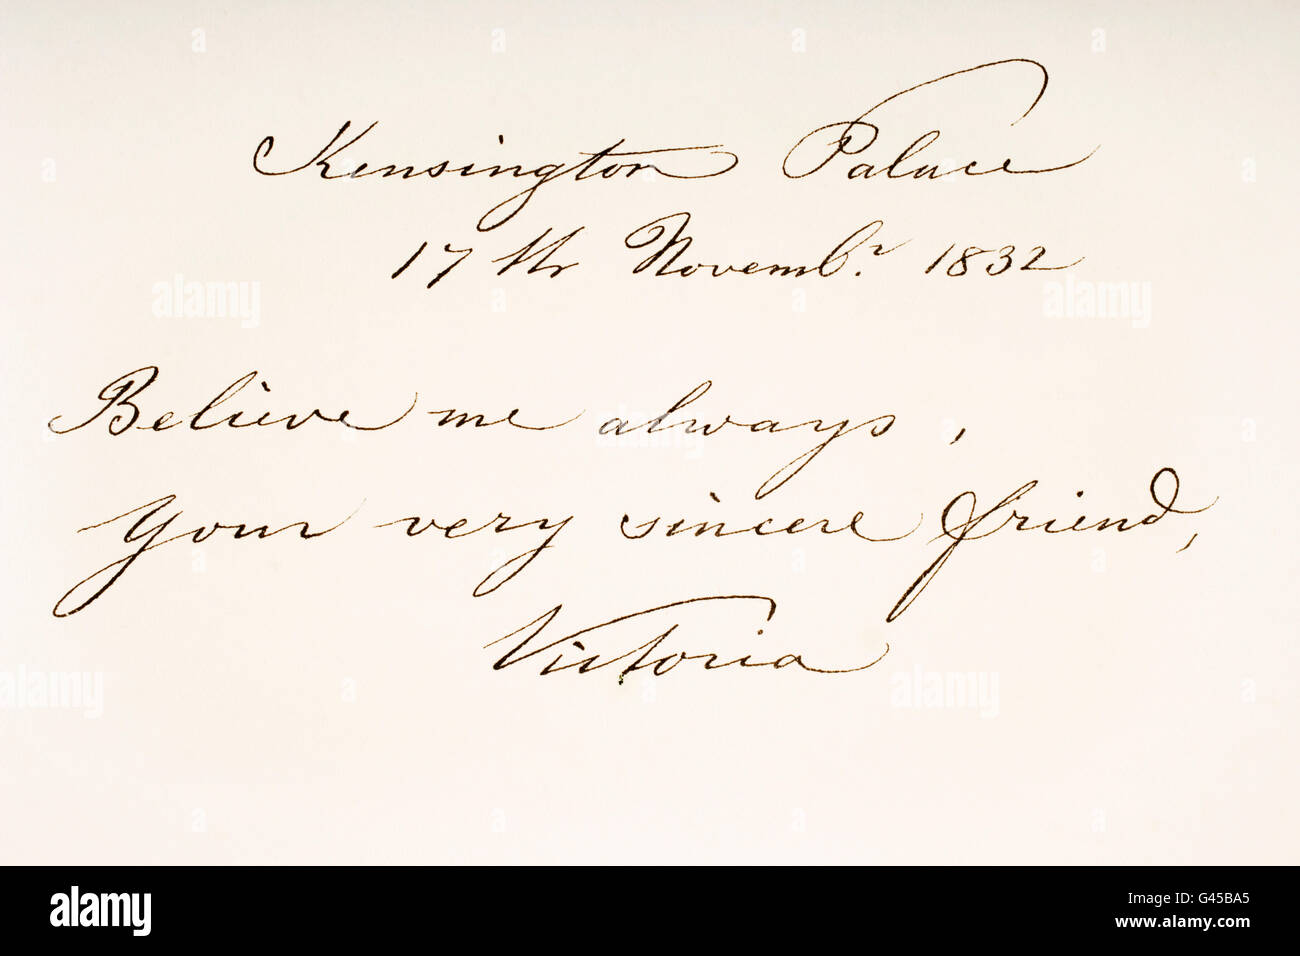 Kensington Palace
17th Novembr. 1832
Believe me always,
Your very sincere friend,
Victoria
alamy
Image ID: G45BA5
www.alamy.com